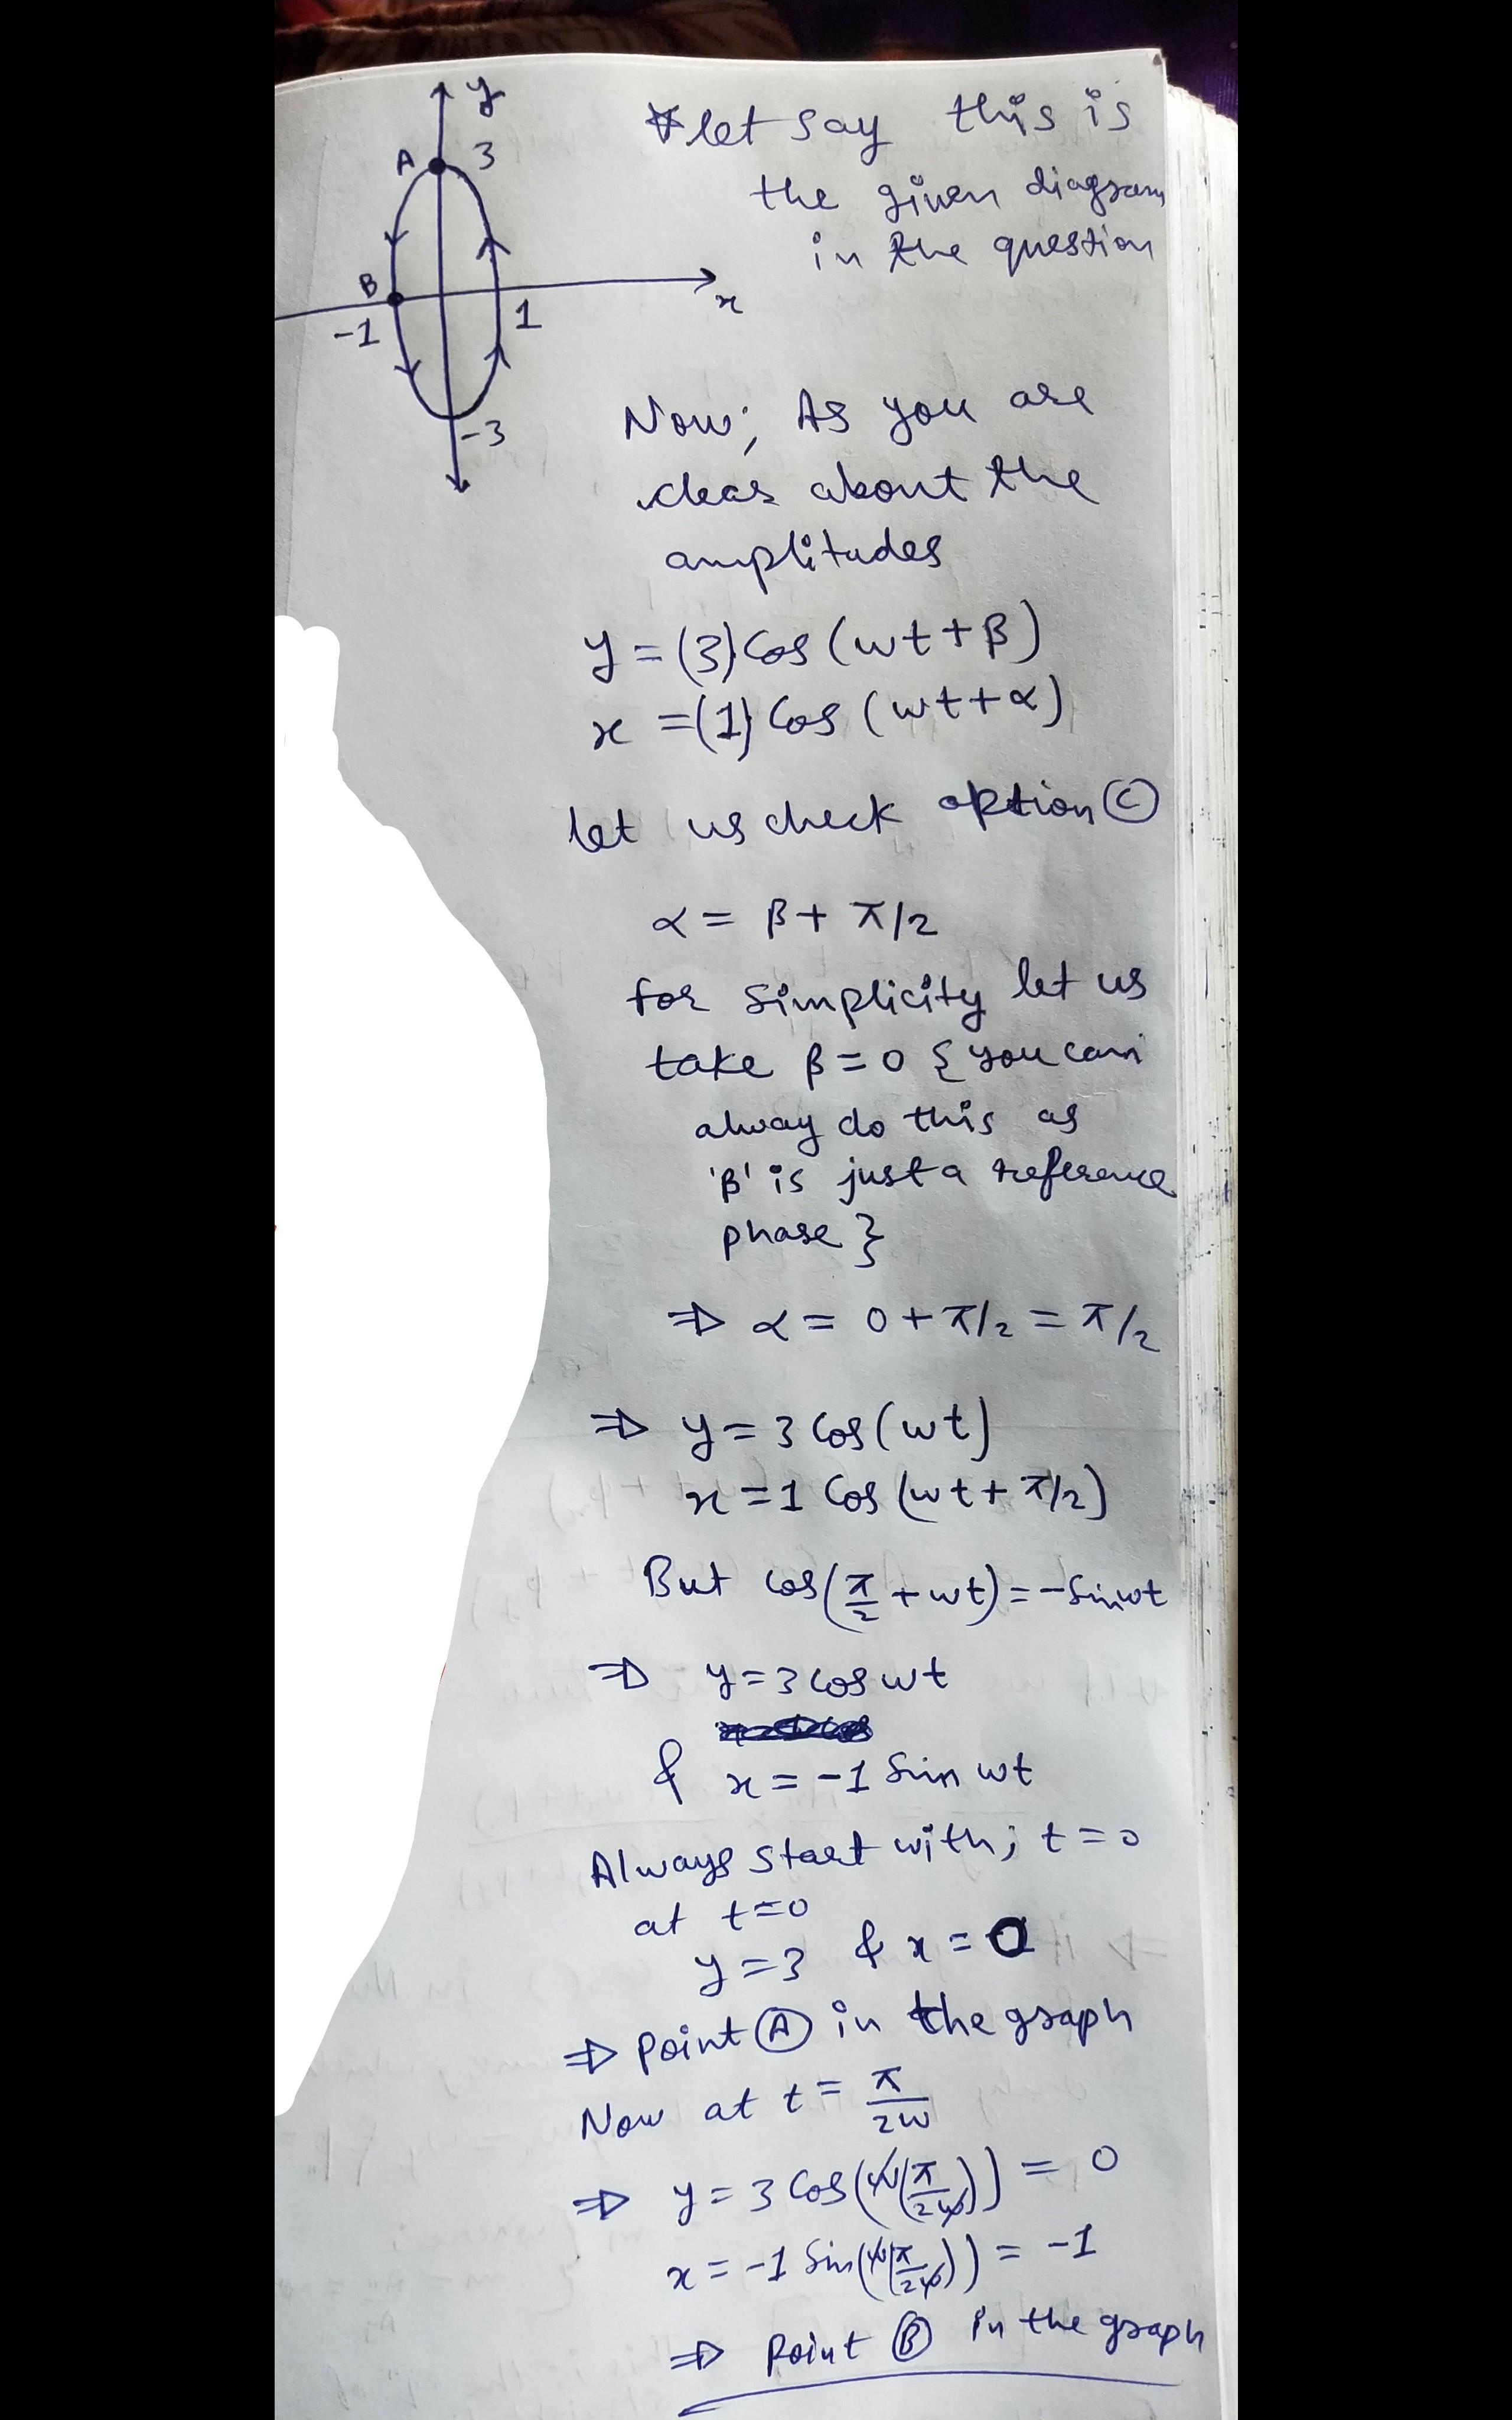 y
A 3
B
-1 1 x
-3
* let say this is
the given diagram
in the question
Now; As you are
clear about the
amplitudes
y = (3) cos (wt + β)
x = (1) cos (wt + α)
let us check option Ⓒ
α = β + π/2
for simplicity let us
take β = 0 { you can
alway do this as
'β' is just a reference
phase }
⇒ α = 0 + π/2 = π/2
⇒ y = 3 cos (wt)
x = 1 cos (wt + π/2)
But cos(π/2 + wt) = -sin wt
⇒ y = 3 cos wt
& x = -1 sin wt
Always start with; t = 0
at t = 0
y = 3 & x = 0
⇒ point Ⓐ in the graph
Now at t = π/2w
⇒ y = 3 cos(w(π/2w)) = 0
x = -1 sin(w(π/2w)) = -1
⇒ Point Ⓑ in the graph